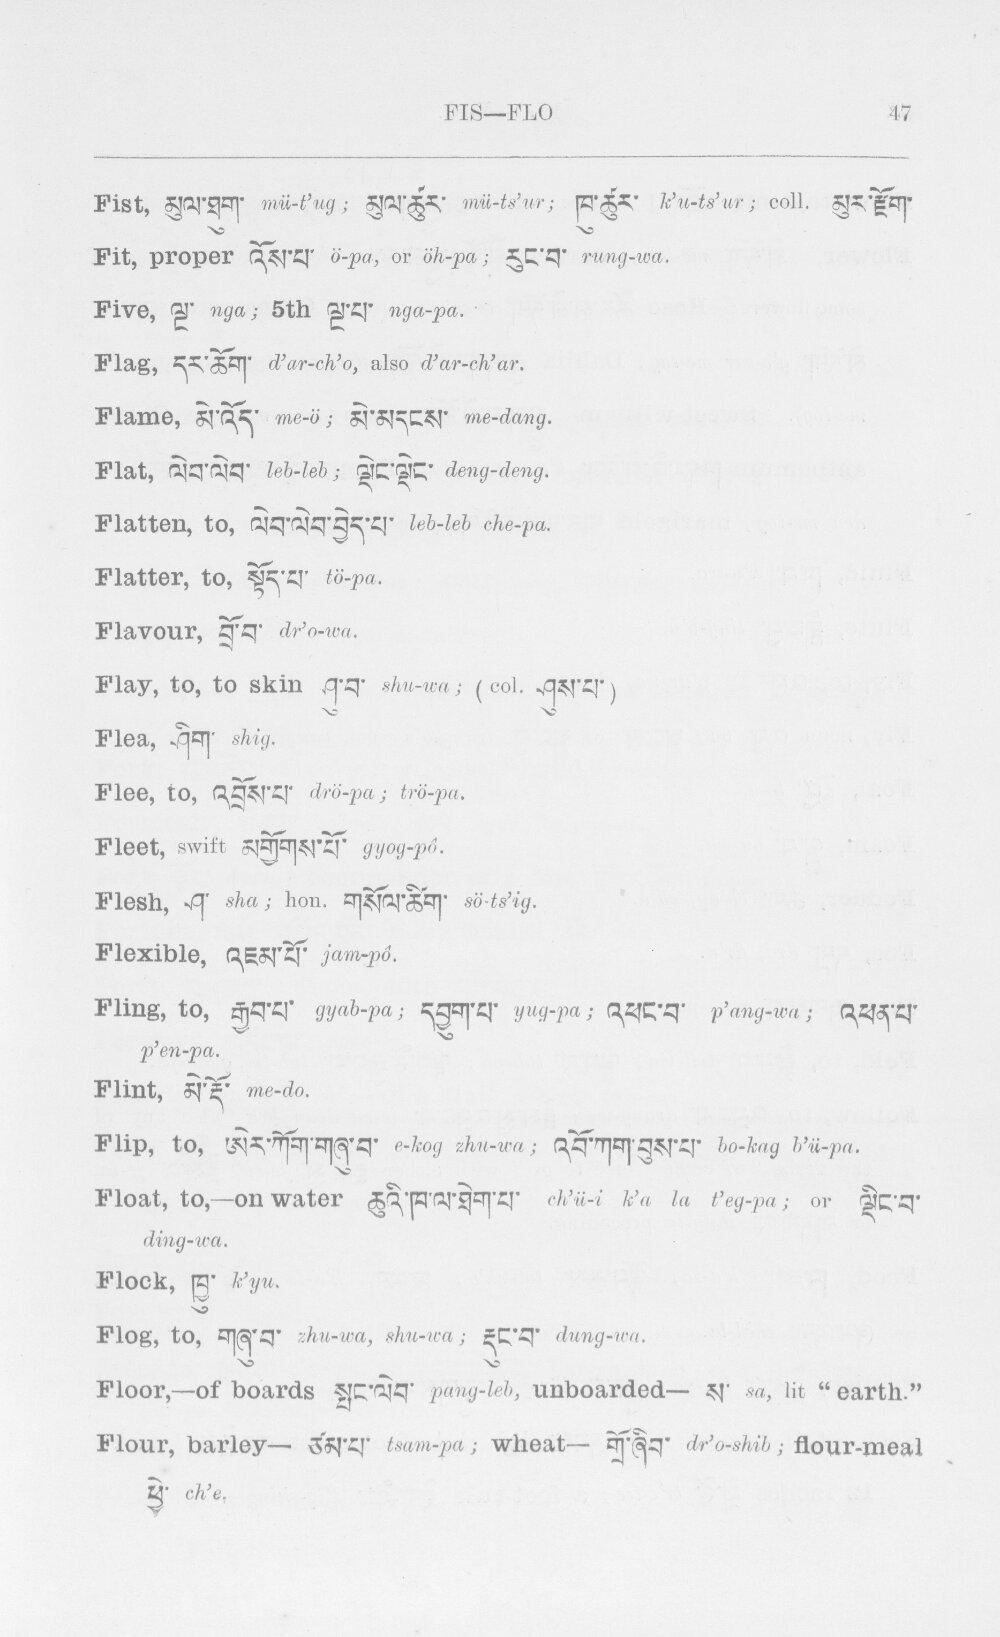 FIS—FLO 47
Fist, མུལ་ཐུག་ mü-t’ug ; མུལ་ཚུར་ mü-ts’ur ; ཁུ་ཚུར་ k’u-ts’ur ; coll. མུར་རྫོག་
Fit, proper འོས་པ་ ö-pa, or öh-pa ; རུང་བ་ rung-wa.
Five, ལྔ་ nga ; 5th ལྔ་པ་ nga-pa.
Flag, དར་ཆོག་ d’ar-ch’o, also d’ar-ch’ar.
Flame, མེ་འོད་ me-ö ; མེ་མདངས་ me-dang.
Flat, ལེབ་ལེབ་ leb-leb ; ལྡེང་ལྡེང་ deng-deng.
Flatten, to, ལེབ་ལེབ་བྱེད་པ་ leb-leb che-pa.
Flatter, to, སྟོད་པ་ tö-pa.
Flavour, བྲོ་བ་ dr’o-wa.
Flay, to, to skin ཤུ་བ་ shu-wa ; ( col. ཤུས་པ་ )
Flea, ཤིག་ shig.
Flee, to, འབྲོས་པ་ drö-pa ; trö-pa.
Fleet, swift མགྱོགས་པོ་ gyog-pô.
Flesh, ཤ་ sha ; hon. གསོལ་ཚིག་ sö-ts’ig.
Flexible, འཇམ་པོ་ jam-pô.
Fling, to, རྒྱབ་པ་ gyab-pa ; དབྱུག་པ་ yug-pa ; འཕང་བ་ p’ang-wa ; འཕན་པ་
p’en-pa.
Flint, མེ་རྡོ་ me-do.
Flip, to, ཨེར་ཀོག་གཞུ་བ་ e-kog zhu-wa ; འབོ་ཀག་བུས་པ་ bo-kag b’ü-pa.
Float, to,—on water ཆུའི་ཁ་ལ་ཐེག་པ་ ch’ü-i k’a la t’eg-pa ; or ལྡིང་བ་
ding-wa.
Flock, ཁྱུ་ k’yu.
Flog, to, གཞུ་བ་ zhu-wa, shu-wa ; རྡུང་བ་ dung-wa.
Floor,—of boards སྤང་ལེབ་ pang-leb, unboarded— ས་ sa, lit “earth.”
Flour, barley— ཙམ་པ་ tsam-pa ; wheat— གྲོ་ཞིབ་ dr’o-shib ; flour-meal
ཕྱེ་ ch’e.